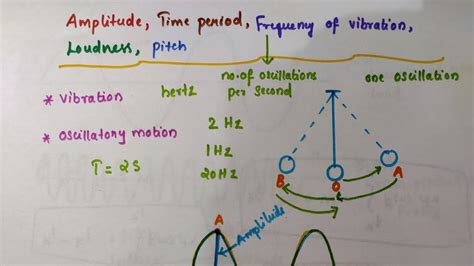 Amplitude, Time period, Frequency of vibration,
Loudness, pitch
* vibration
hertz
no. of oscillations
per second
one oscillation
* oscillatory motion
2 Hz
1 Hz
20 Hz
T = 2S
B
O
A
A
Amplitude